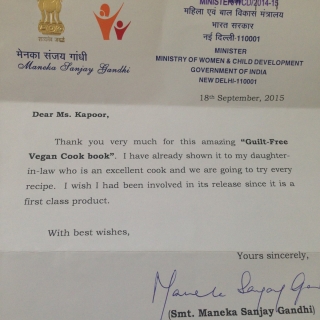 MINISTER/WCD/2014-15
महिला एवं बाल विकास मंत्रालय
भारत सरकार
नई दिल्ली-110001
MINISTER
MINISTRY OF WOMEN & CHILD DEVELOPMENT
GOVERNMENT OF INDIA
NEW DELHI-110001
मेनका संजय गांधी
Maneka Sanjay Gandhi
18th September, 2015
Dear Ms. Kapoor,
Thank you very much for this amazing "Guilt-Free
Vegan Cook book". I have already shown it to my daughter-
in-law who is an excellent cook and we are going to try every
recipe. I wish I had been involved in its release since it is a
first class product.
With best wishes,
Yours sincerely,
Maneka Sanjay Gan
(Smt. Maneka Sanjay Gandhi)